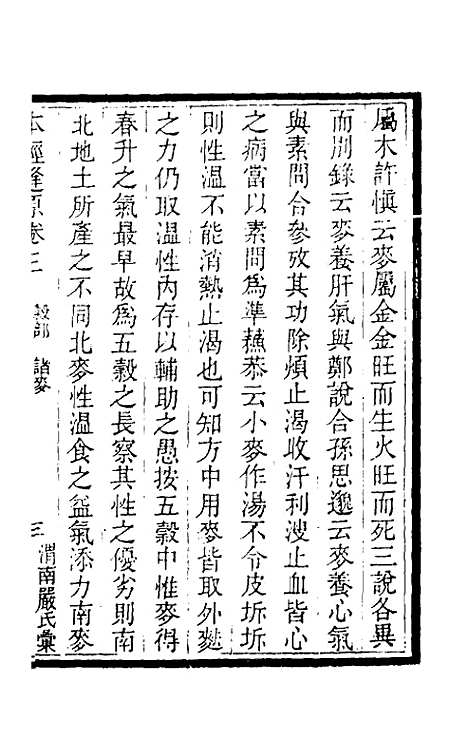 屬木許愼云麥屬金金旺而生火旺而死三說各異
而別錄云麥養肝氣與鄭說合孫思邈云麥養心氣
與素問合參攷其功除煩止渴收汗利溲止血皆心
之病當以素問爲準蘇恭云小麥作湯不令皮坼坼
則性溫不能消熱止渴也可知方中用麥皆取外麩
之力仍取溫性內存以輔助之愚按五穀中惟麥得
春升之氣最早故爲五穀之長察其性之優劣則南
北地土所產之不同北麥性溫食之益氣添力南麥
本經逢原卷三 穀部 諸麥 三 渭南嚴氏彙